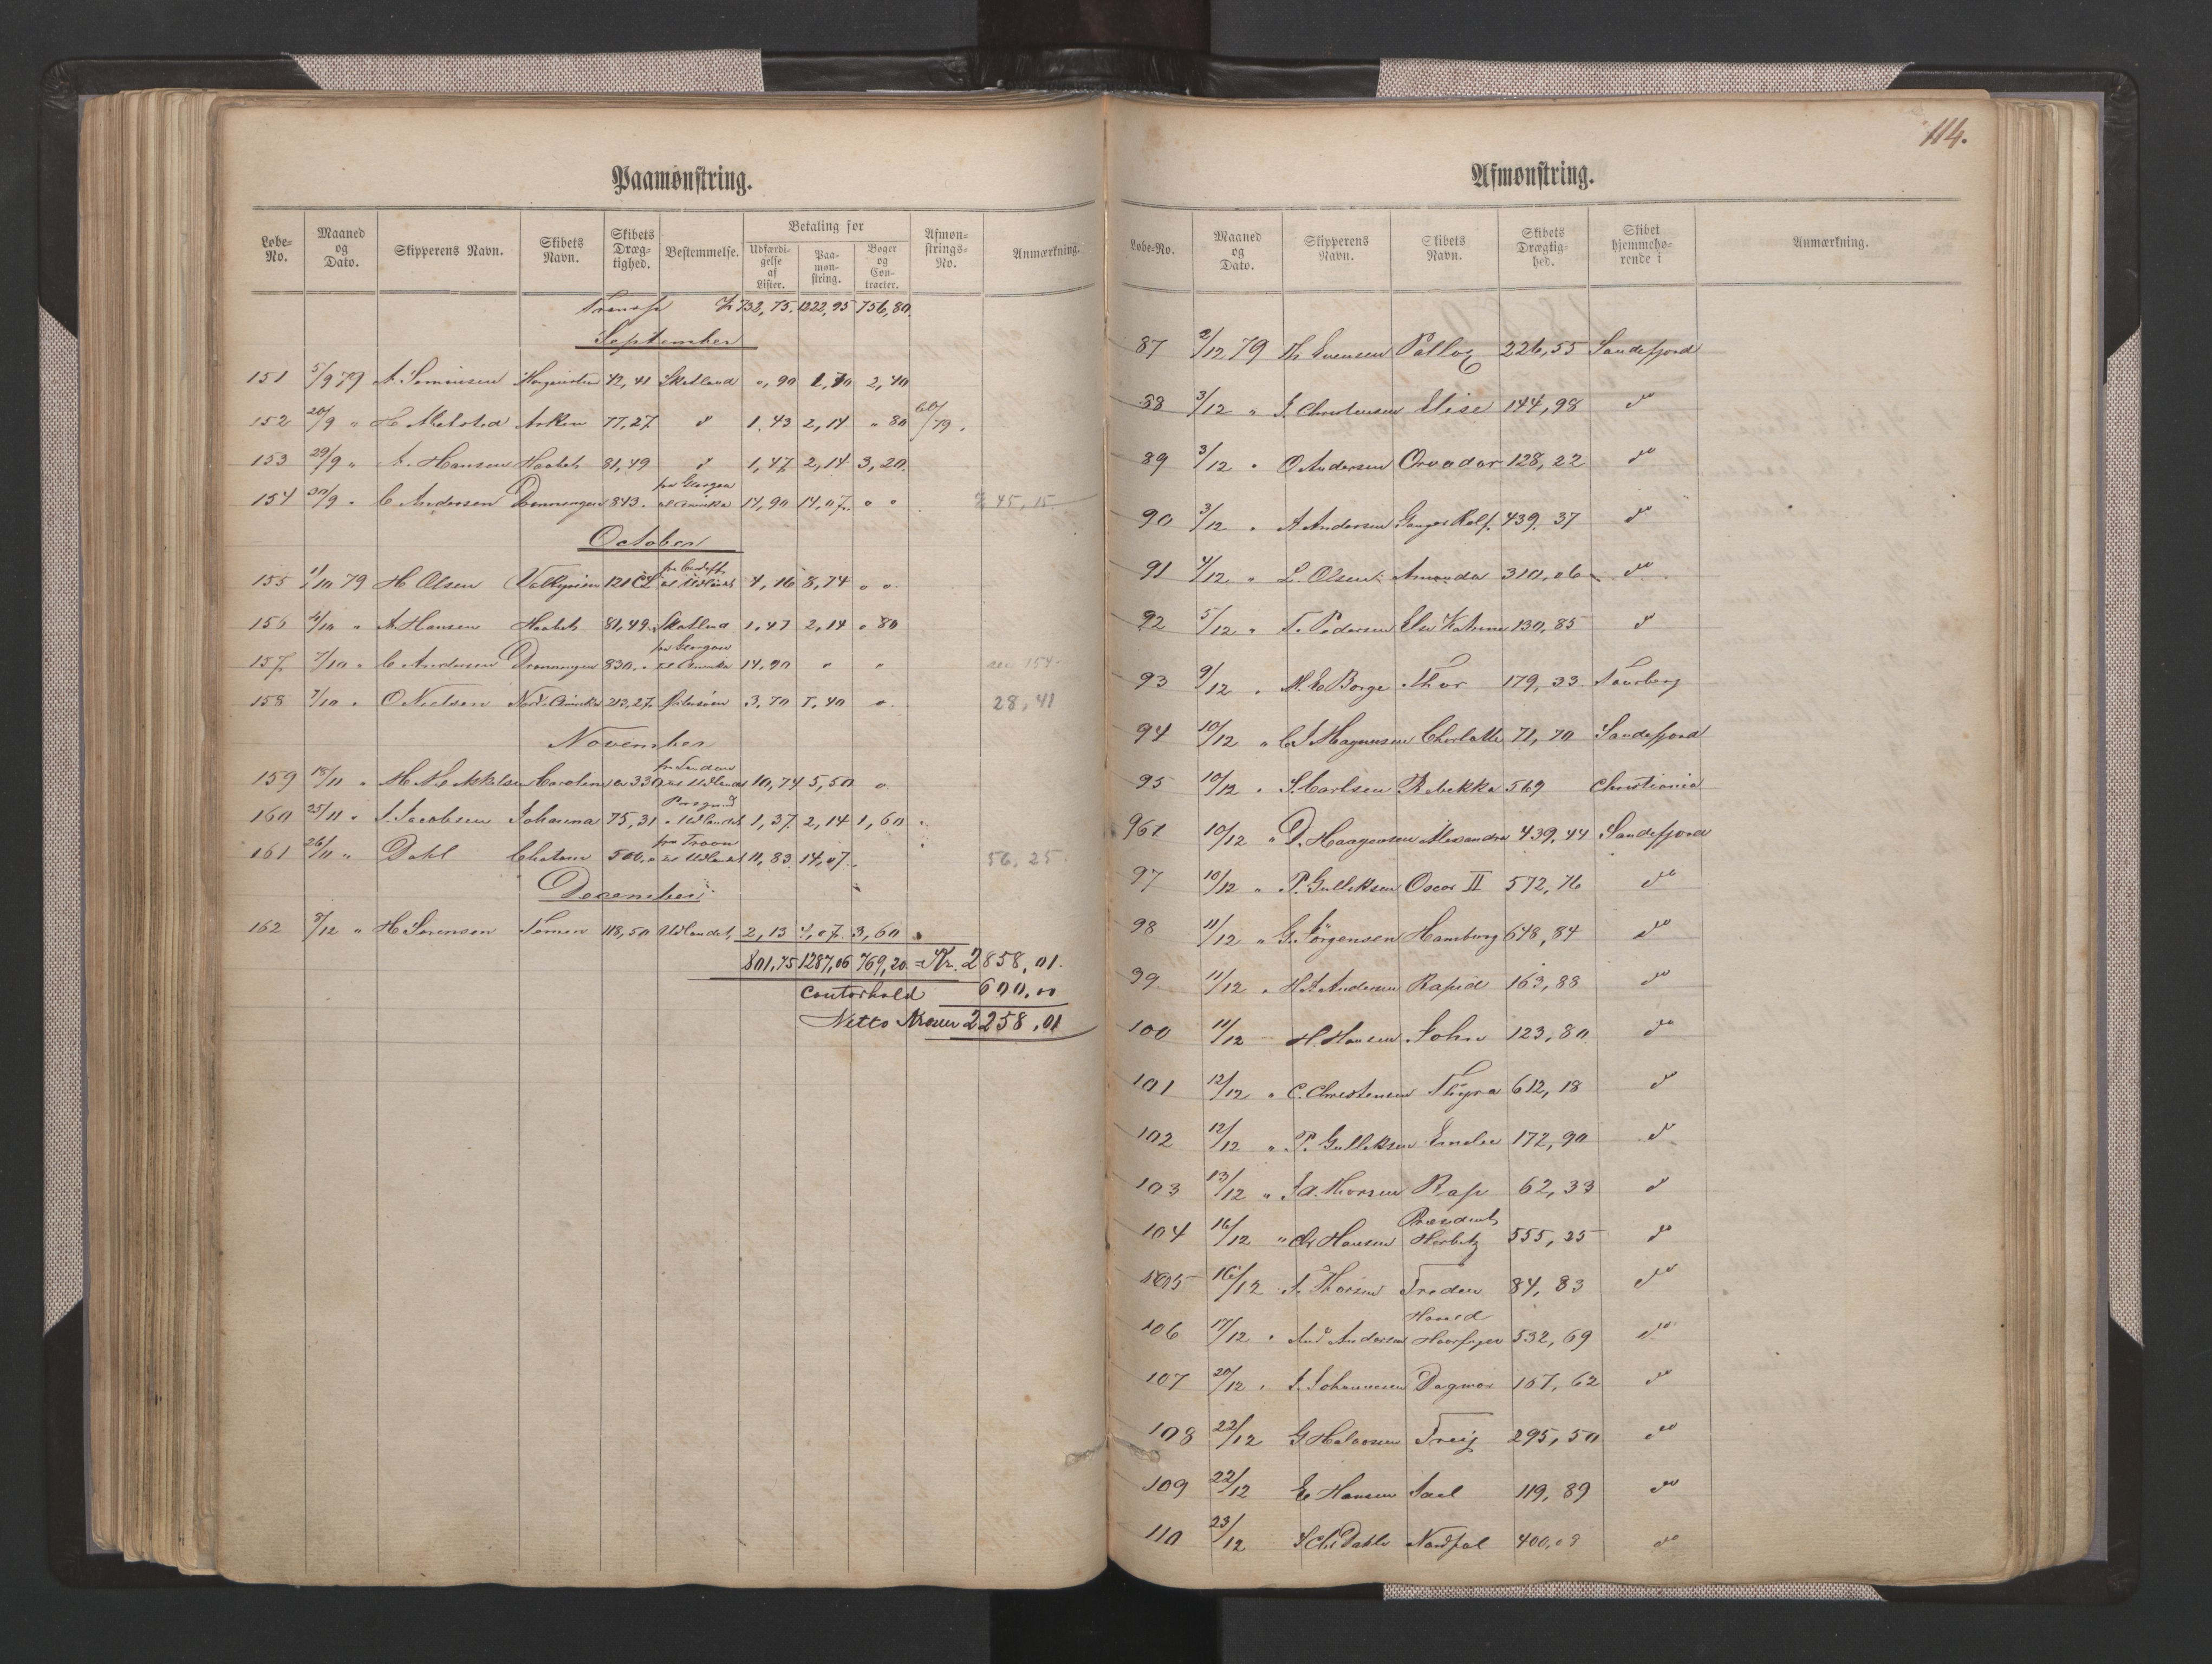 114.
Paamønstring.
Løbe-No. Maaned og Dato. Skipperens Navn. Skibets Navn. Skibets Dræg-tighed. Bestemmelse. Betaling for Udfærdi-gelse af Lister. Paa-møn-string. Bøger og Con-tracter. Afmøn-strings-No. Anmærkning.
Transp Kr 732,75. 1222,95 756,80.
September
151 5/9 79 A. 42,41 Skotland ", 90 2,40
152 20/9 " H Arken 77,27 do 1,43 2,14 " 80 60/79.
153 29/9 " A. Hansen Haabet 81,49 do 1,47 2,14 3,20.
154 30/9 " C Andersen Dronningen 843. 14,90 14,07. " " 45,15
October
155 1/10 79 H Olsen Valkyrien 121 CL til Udlandet 4,16 8,74 " "
156 4/10 " A Hansen Haabet 81,49 Skotland 1,47 2,14 " 80
157 7/10 " C Andersen Dronningen 830. 14,90 " " see 154.
158 7/10 " O Nielsen Nord. 213,27 3,70 7,40 ". 28,41
November
159 18/11 " Carolina 330 fra London til Udlandet 10,74 5,50 "
160 25/11 " J. Jacobsen Johanna 75,31 Porsgrund Udlandet 1,37. 2,14 1,60
161 26/11 " Dahl Chatam 500. fra Troon til Udlandet 11,83. 14,07. 56,25.
December
162 8/12 " H Sørensen 118,50 Udlandet, 2,13 4,07. 3,60
801,75 1287,06 769,20. = Kr. 2858,01.
Contorhold 600,00
Netto Kroner 2258,01
Afmønstring.
Løbe-No. Maaned og Dato. Skipperens Navn. Skibets Navn. Skibets Drægtig-hed. Skibet hjemmehø-rende i Anmærkning.
87 2/12 79 Th Evensen Pollux 226,55 Sandefjord
88 3/12 " J. Christensen Elise 144,98 do
89 3/12 " O Andersen Orvador 128,22 do
90 3/12 " A Andersen Ganger Rolf. 439,37 do
91 4/12 " L. Olsen. Amanda 310,06 do
92 5/12 " T. Pedersen Else Katrine 130,85 do
93 9/12 " M. E Borge Thor 179,33. Taarberg
94 10/12 " C J Magnusen Charlotte 71,70 Sandefjord
95 10/12 " S. Carlsen Rebekka 569 Christiania
96 10/12 " D. Haagensen Alexandra 439,44 Sandefjord
97 10/12 " P. Gulliksen Oscar II 572,76 do
98 11/12 " G. Jörgensen Hamburg 648,84 do
99 11/12 " H J. Andersen Rapid 163,88 do
100 11/12 H. Hansen John 123,80 do
101 12/12 " C. Christensen Thyra 612,18 do
102 12/12 " P. Gulliksen Emelie 172,90 do
103 13/12 " J A. Thorsen Rap 62,33 do
104 16/12 " Chr Hansen Præsident Herbitz 555,25 do
105 16/12 " Thorsen Freden 84,83 do
106 17/12 " And Andersen Harald Haarfager 532,69 do
107 20/12 " J. Johannesen Dagmar 157,62 do
108 22/12 G Halvorsen Freij 295,50 do
109 22/12 E Hansen Sael 119,89 do
110 23/12 S Chr Dahle Nordpol 400,03 do